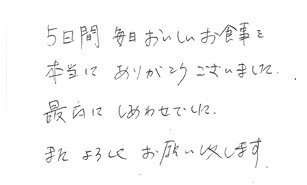 5日間 毎日おいしいお食事を
本当に ありがとうございました.
最高に しあわせでした.
また よろしく お願い致します